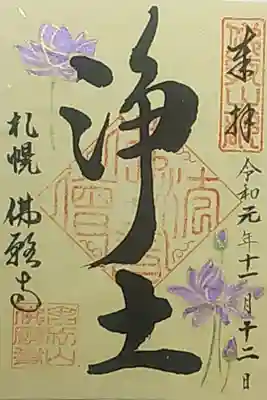 奉拝
令和元年十一月十二日
浄土
札幌 佛願寺